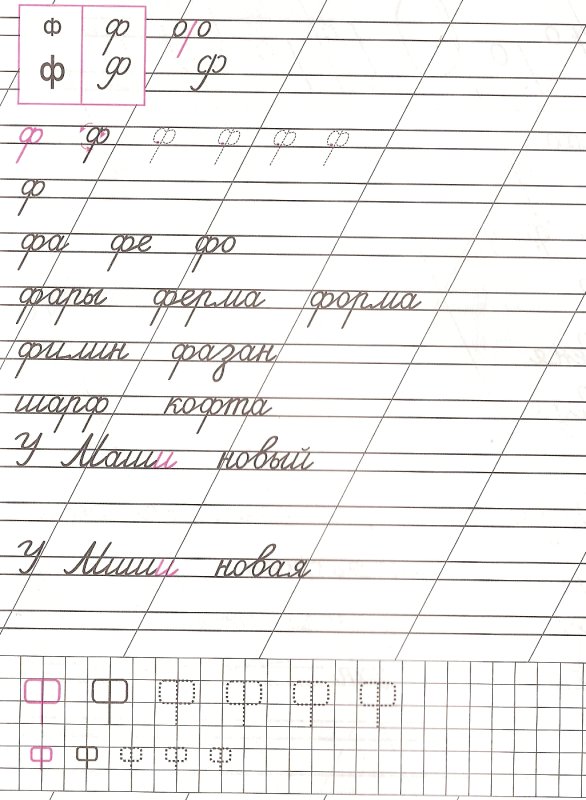 ф ф
ф ф ф
ф ф ф ф ф ф
ф
фа фе фо
фары ферма форма
филин фазан
шарф кофта
У Маши новый
У Миши новая
Ф Ф Ф Ф Ф Ф
ф ф ф ф ф